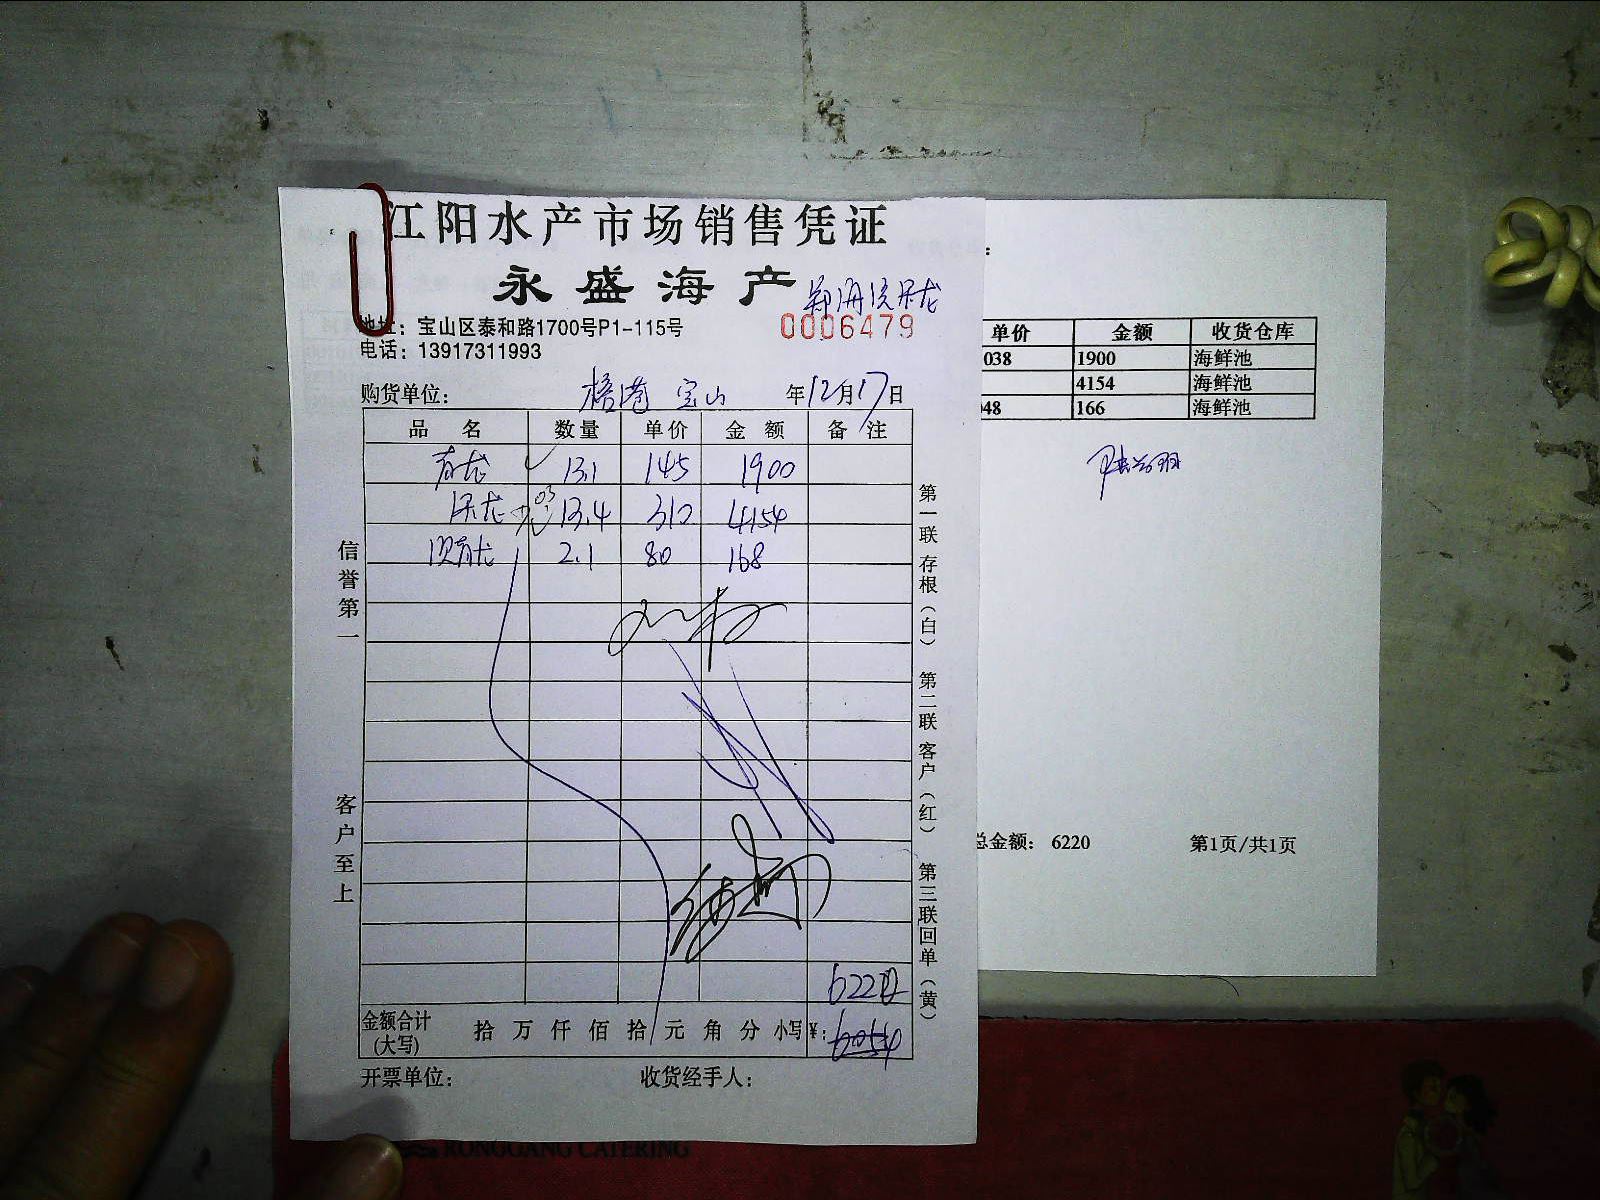 江阳水产市场销售凭证
永盛海产
0006479
地址：宝山区泰和路1700号P1-115号
电话：13917311993
购货单位： 宝山 年12月17日
品名 数量 单价 金额 备注
青龙 13.1 145 1900
13.4 310 4154
2.1 80 168
6220
金额合计(大写) 拾 万 仟 佰 拾 元 角 分 小写¥: 6054
开票单位： 收货经手人：
信誉第一
客户至上
第一联存根（白） 第二联客户（红） 第三联回单（黄）
单价 金额 收货仓库
038 1900 海鲜池
4154 海鲜池
48 166 海鲜池
总金额： 6220 第1页/共1页
RONGGANG CATERING